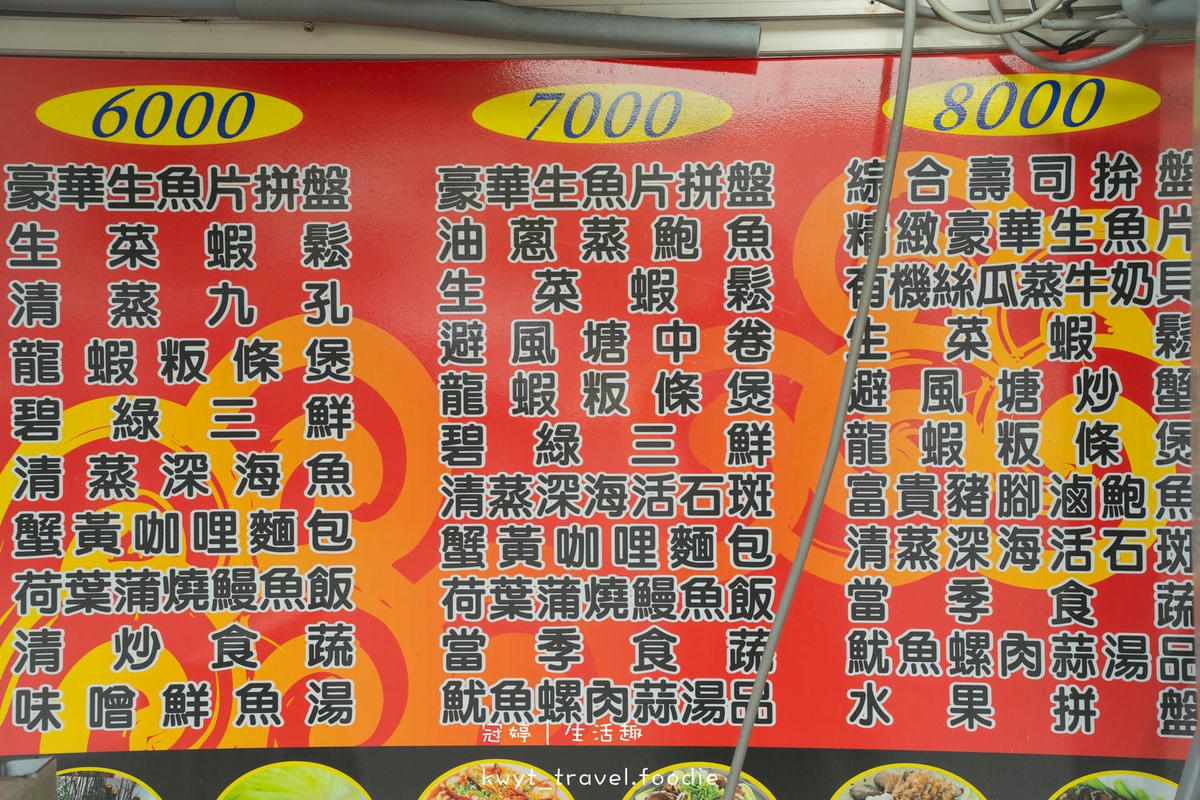 6000
豪華生魚片拼盤
生菜蝦鬆
清蒸九孔
龍蝦粄條煲
碧綠三鮮
清蒸深海魚
蟹黃咖哩麵包
荷葉蒲燒鰻魚飯
清炒食蔬
味噌鮮魚湯
7000
豪華生魚片拼盤
油蔥蒸鮑魚
生菜蝦鬆
避風塘中卷
龍蝦粄條煲
碧綠三鮮
清蒸深海活石斑
蟹黃咖哩麵包
荷葉蒲燒鰻魚飯
當季食蔬
魷魚螺肉蒜湯品
8000
綜合壽司拚盤
精緻豪華生魚片
有機絲瓜蒸牛奶貝
生菜蝦鬆
避風塘炒蟹
龍蝦粄條煲
富貴豬腳滷鮑魚
清蒸深海活石斑
當季食蔬
魷魚螺肉蒜湯品
水果拼盤
冠婷｜生活趣
kwyt_travel.foodie